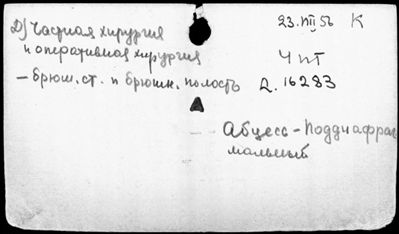 Д) Частная хирургия
и оперативная хирургия
– брюш. ст. и брюшн. полость
23.VIII 56 К
Ч пт
Д. 16283
Абцесс – Поддиафраг
мальный